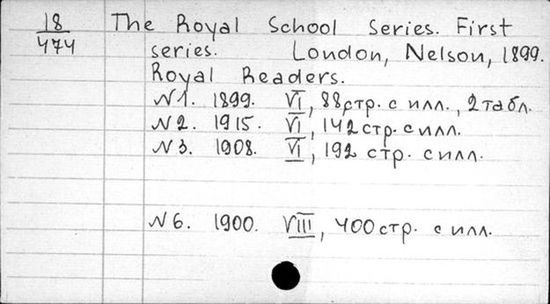 18
474
The Royal School Series. First
series. London, Nelson, 1899.
Royal Readers.
N 1. 1899. VI, 88 стр. с илл., 2 табл.
N 2. 1915. VI, 142 стр. с илл.
N 3. 1908. VI, 192 стр. с илл.
N 6. 1900. VIII, 400 стр. с илл.